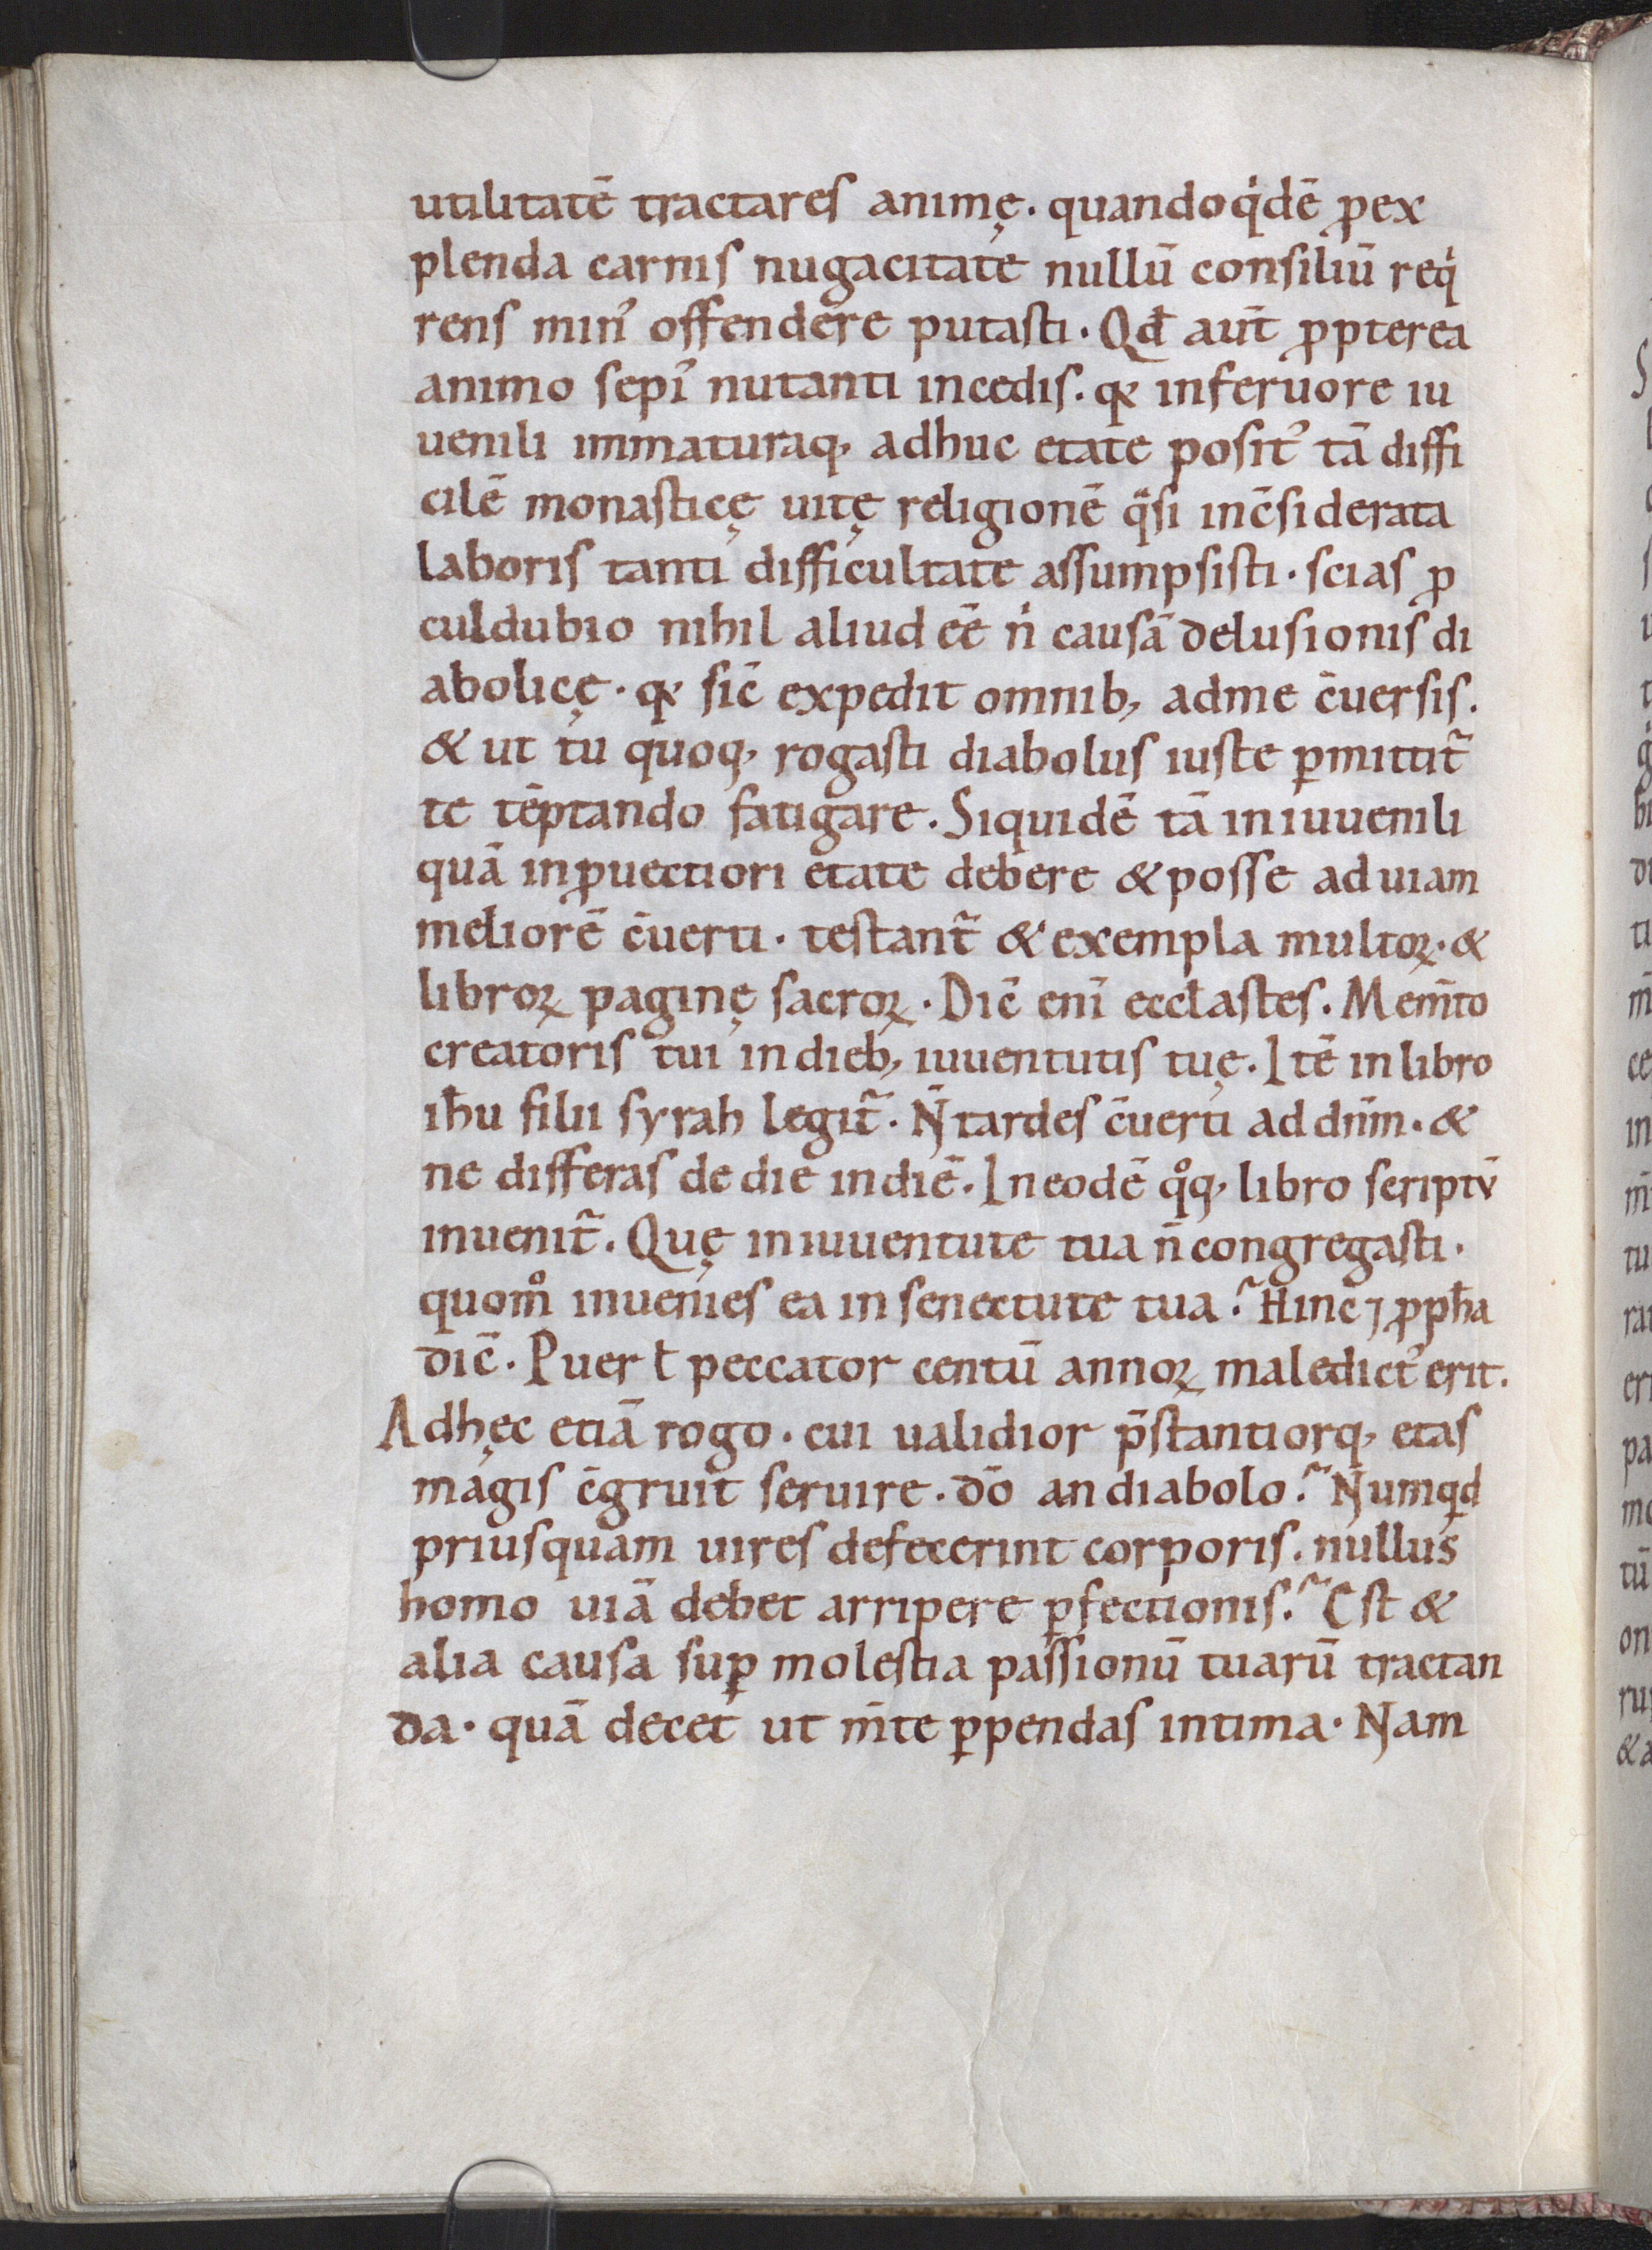 utilitatē tractares animę. quandoq̇dē ꝓex
plenda carnis nugacitate nullū consiliū req̇
rens min᾽ offendere putasti. Qd̄ aut̄ ꝓpterea
animo sepi᾽ nutanti incedis. qꝛ inferuore iu
uenili immaturaq, adhuc etate posit᾽ tā diffi
cilē monasticę uitę religionē qͣsi inc̄siderata
laboris tanti difficultate assumpsisti. scias ꝓ
culdubio nihil aliud eē ṅ causā delusionis di
abolicę. qꝛ sic̄ expedit omnib, adme c̄uersis.
& ut tu quoq, rogasti diabolus iuste ꝑmittit̃
te tēptando fatigare. Siquidē tā iniuuenili
quā inꝓuectiori etate debere &posse ad uiam
meliorē c̄uerti. testant̃ & exempla multoꝝ. &
libroꝝ paginę sacroꝝ. Dic̄ eni̅ eccl̄astes. Mem̄to
creatoris tui in dieb, iuuentutis tuę. Itē in libro
ih̄u filii syrah legit̃. N̄ tardes c̄uerti ad dn̄m. &
ne differas de die indiē. In eodē qͦq, libro scriptv̄
inuenit̃. Quę iniuuentute tua n̄ congregasti.
quom̊ inuenies ea in senectute tua? Hinc ⁊ ꝓph̄a
dic̄. Puer ł peccator centū annoꝝ maledict᾽ erit.
Adhęc etiā rogo. cui ualidior p̄stantiorq, etas
magis c̄gruit seruire. dō an diabolo? Numqͥd
priusquam uires defecerint corporis. nullus
homo uiā debet arripere ꝑfectionis? Est &
alia causa suꝑ molestia passionū tuarū tractan
da. quā decet ut m̄te ꝑpendas intima. Nam